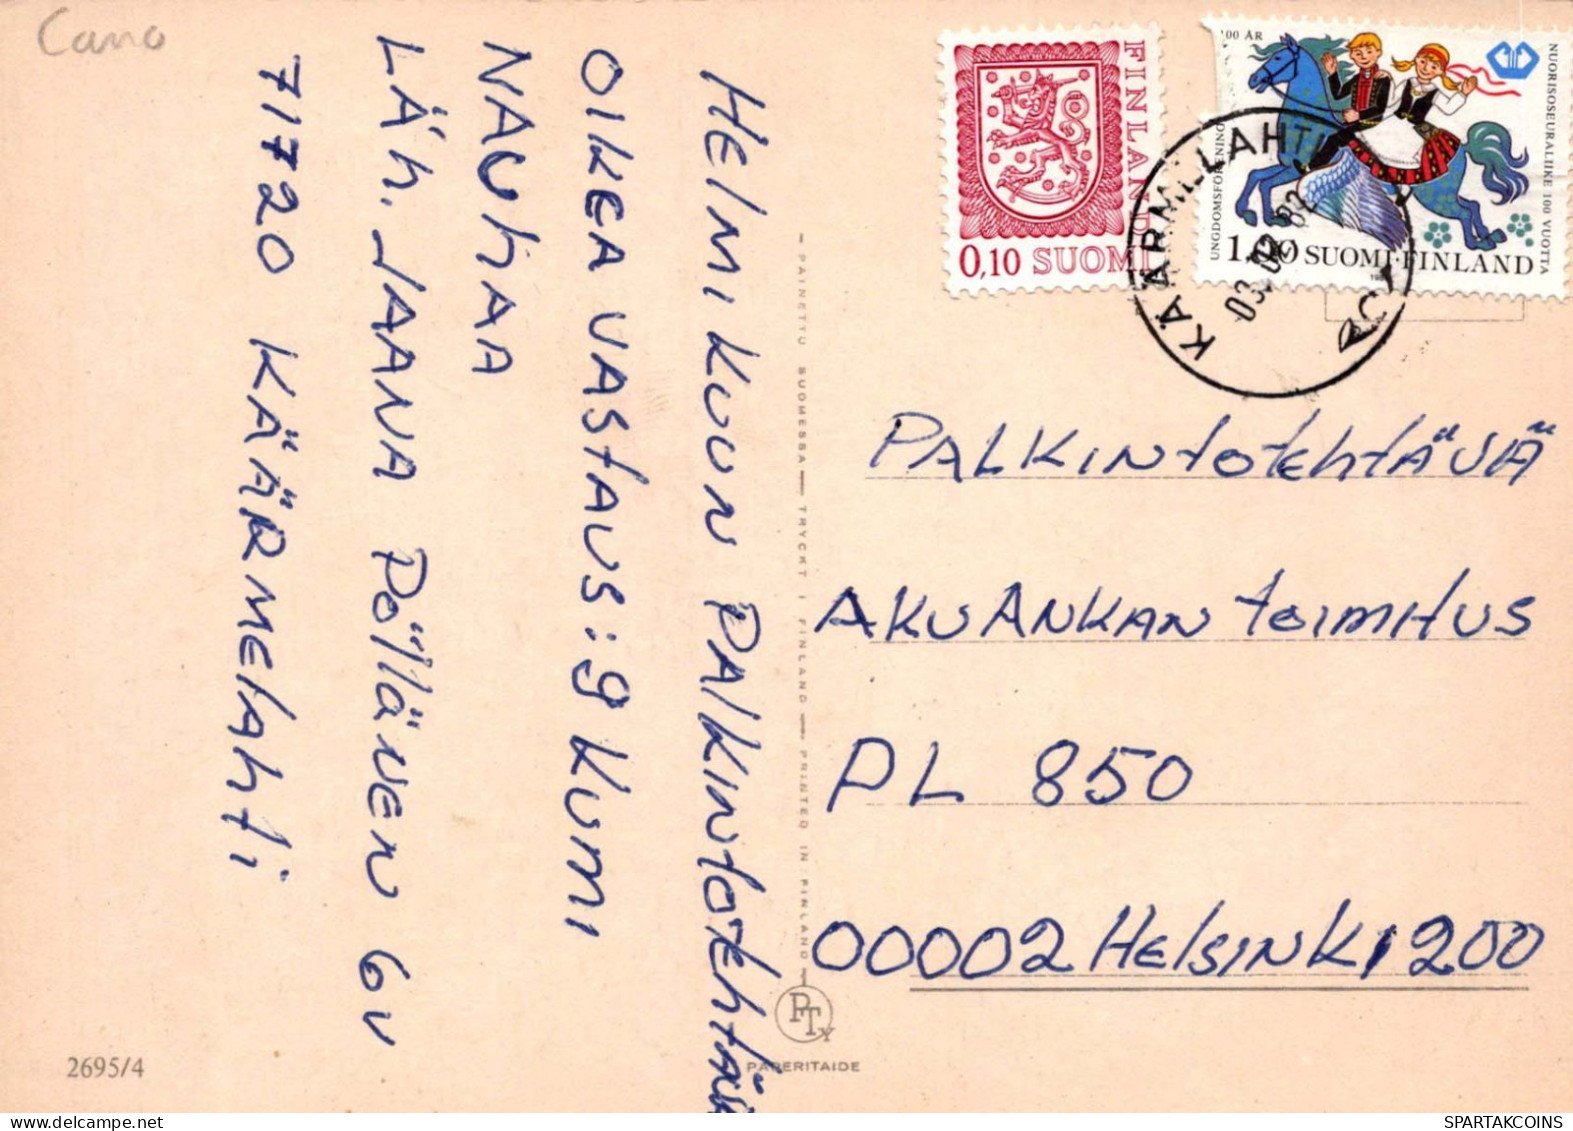 Cano
HELMIKUUN PALKINTOTEHTÄVÄ
OIKEA VASTAUS: 9 KUMI
NAUHAA
LÄH. JAANA PÖLLÄNEN 6V
71720 KÄÄRMELAHTI
PAINETTU SUOMESSA — TRYCKT I FINLAND — PRINTED IN FINLAND
PTY
PAPERITAIDE
2695/4
FINLAND
0,10 SUOMI
100 ÅR
UNGDOMSFÖRENING
NUORISOSEURALIIKE 100 VUOTTA
SUOMI·FINLAND
KÄÄRMELAHTI
PALKINTOTEHTÄVÄ
AKU ANKAN TOIMITUS
PL 850
00002 HELSINKI 200
SPARTAKCOINS